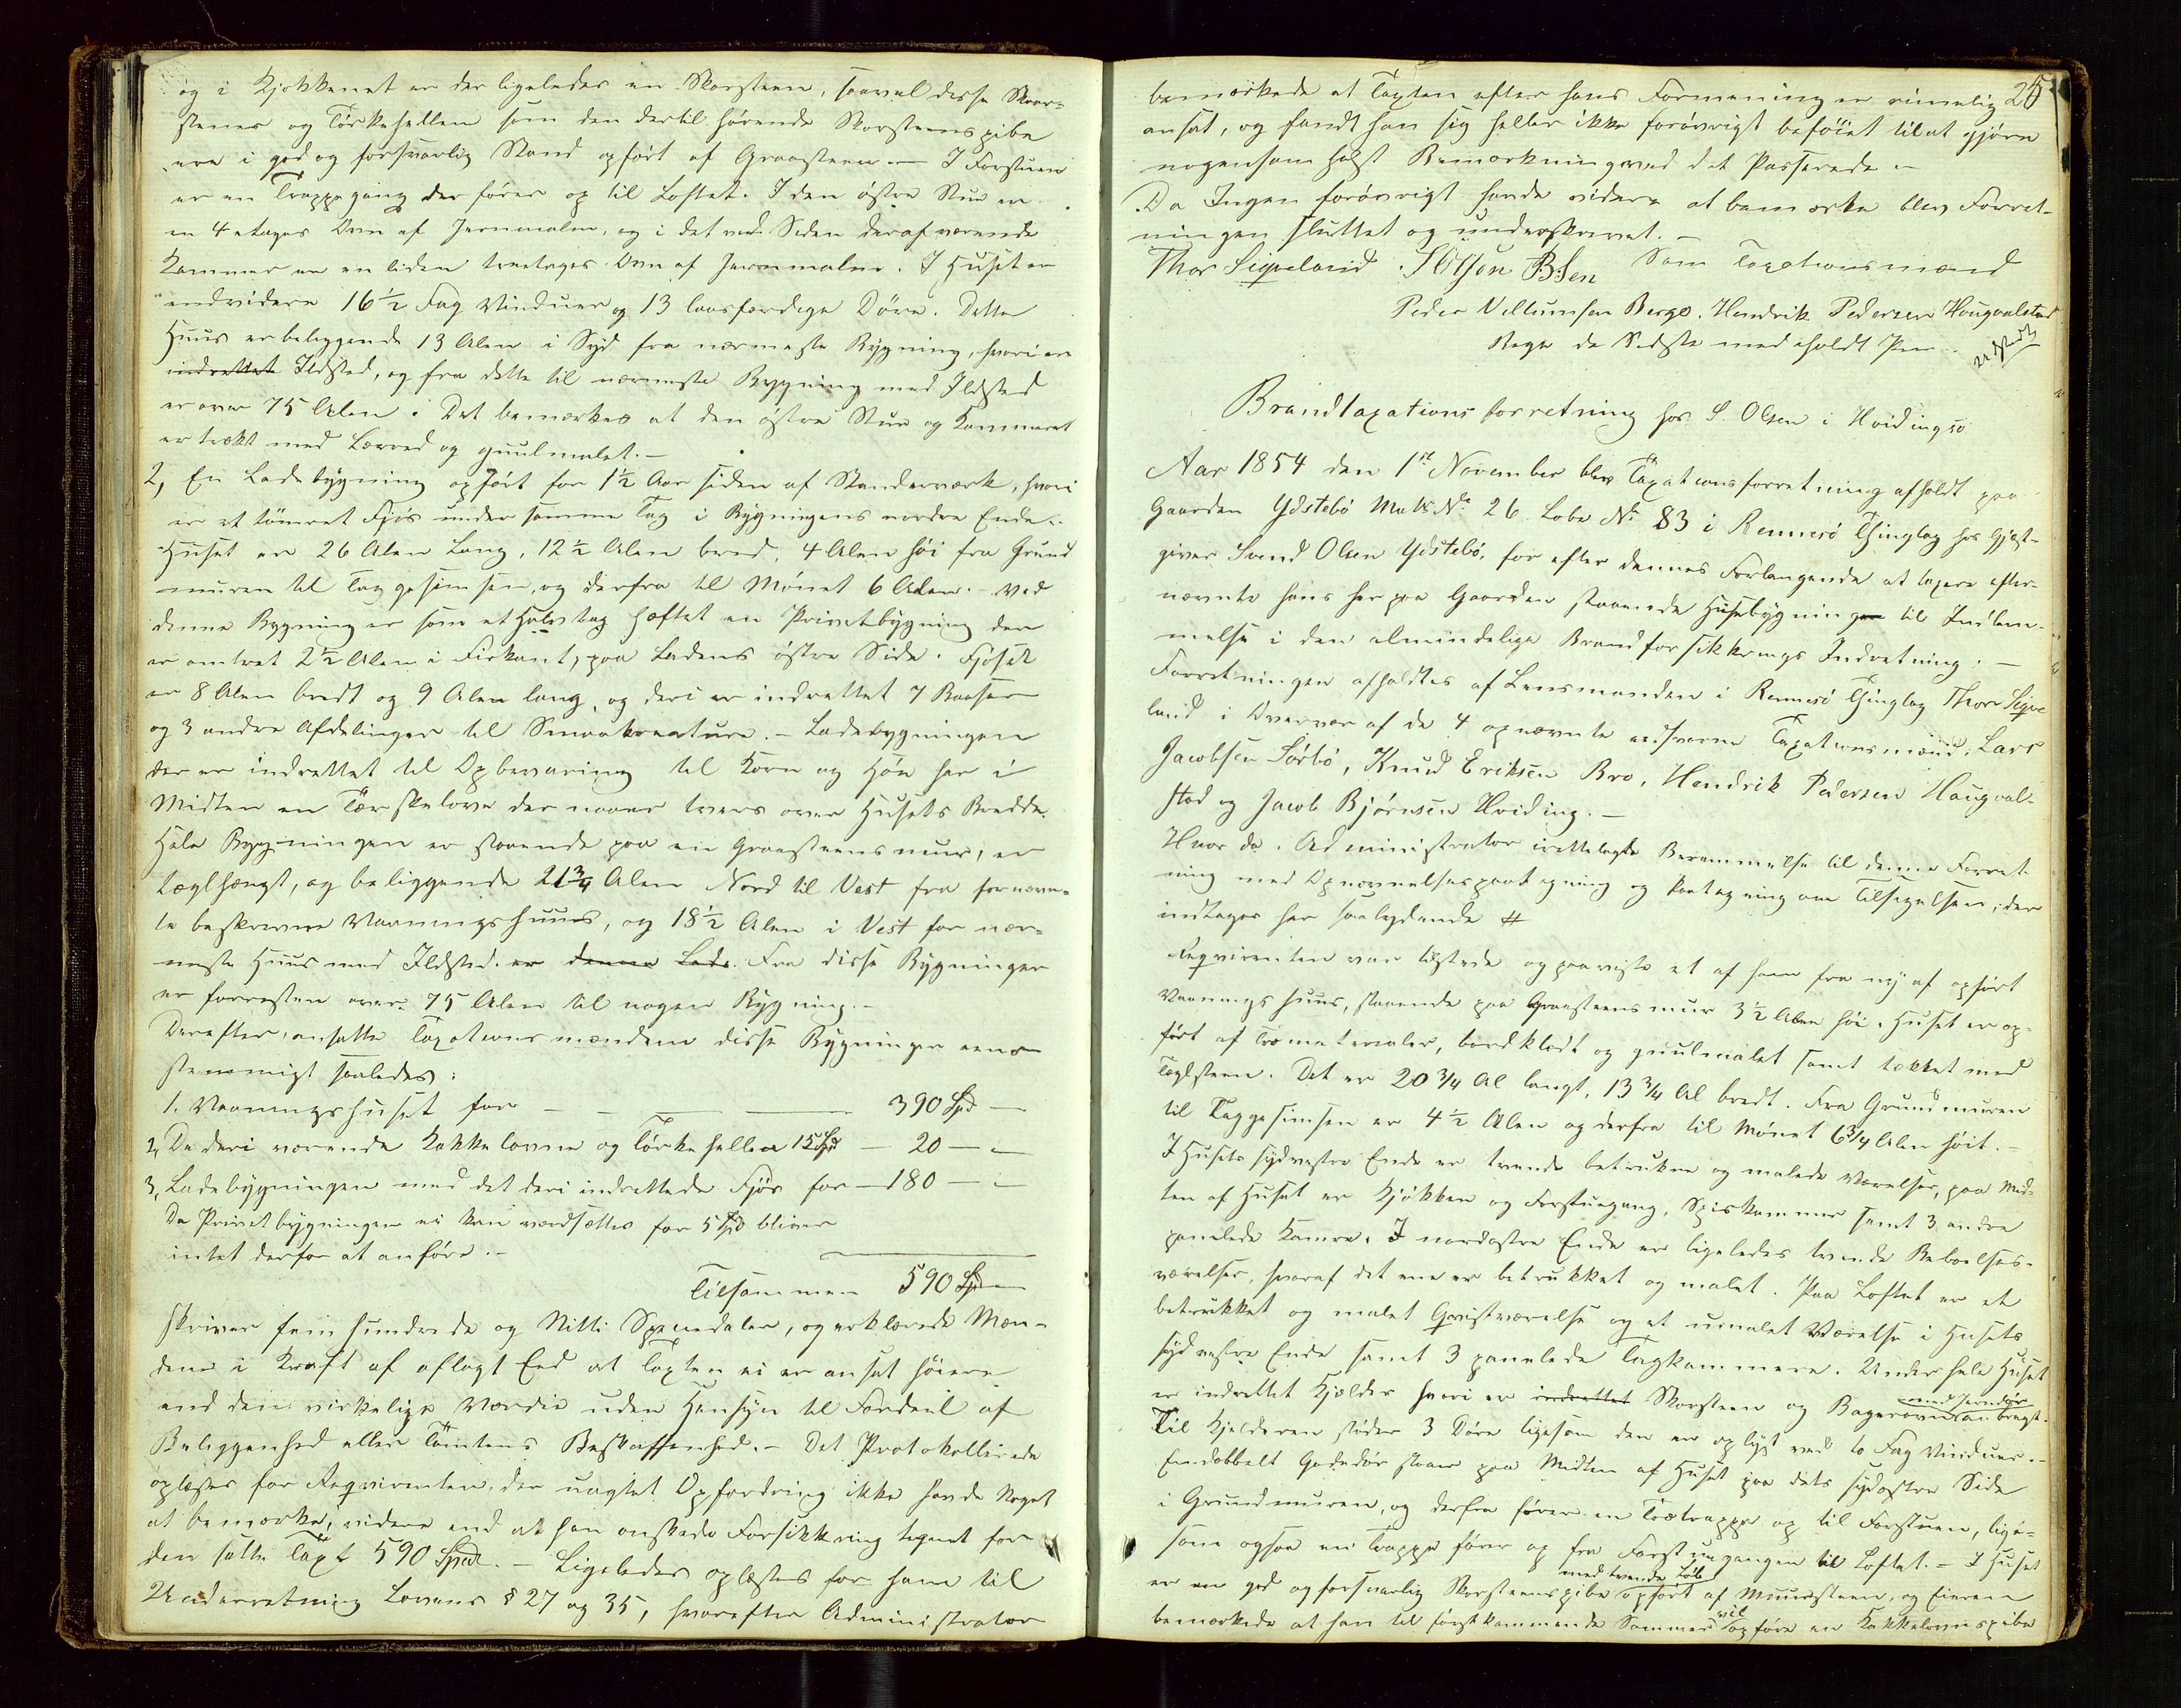 og i Kjøkkenet er der ligeledes en Skorsteen, saavel disse Skor-
stener og Tørkehellen som den dertil hørende Skorsteenspibe
ere i god og forsvarlig Stand opført af Graasteen. — I Forstuen
er en Trappegang der fører op til Loftet. I den østre Stue er
en 4 etages Ovn af Jernmalm, og i det ved Siden deraf værende
Kammer er en liden treetages Ovn af Jernmalm. I Huset er
endvidere 16½ Fag Vinduer og 13 laasfærdige Døre. Dette
Huus er beliggende 13 Alen i Syd fra nærmeste Bygning, hvori er
indrettet Ildsted, og fra dette til nærmeste Bygning med Ildsted
er over 75 Alen. Det bemærkes at den østre Stue og Kammeret
er trækt med Lærred og guulmalet. —
2, En Ladebygning opført for 1½ Aar siden af Standerværk, hvori
er et tømret Fjøs under samme Tag i Bygningens nordre Ende.
Huset er 26 Alen Lang, 12½ Alen bred, 4 Alen høi fra Grund
muren til Taggesimsen, og derfra til Mønet 6 Alen. Ved
denne Bygning er som et Halvtag hæftet en Privetbygning der
er omtret 2½ Alen i Firkant, paa Ladens østre Side. Fjøset
er 8 Alen bredt og 9 Alen lang, og deri er indrettet 7 Baaser
og 3 andre Afdelinger til Smaakreature. — Ladebygningen
der er indrettet til Opbevaring til Korn og Høe har i
Midten en Tærskelove der naaer tvers over Husets Bredde.
Hele Bygningen er staaende paa en Graasteensmuur, er
tæglhængt, og beliggende 21¾ Alen Nord til Vest fra fornævn-
te beskrevne Vaaningshuus, og 18½ Alen i Vest for nær-
meste Huus med Ildsted. er denne Lade. Fra disse Bygninger
er forresten over 75 Alen til nogen Bygning. —
Derefter ansatte Taxationsmændene disse Bygninger eens-
stemmigt saaledes:
1. Vaaningshuset for — — — 390 Spd —
2, De deri værende Kakkelovne og Tørkehellen 15 Spd — 20 — —
3, Ladebygningen med det deri indrettede Fjøs for — 180 — —
Da Privetbygningen ei kan værdsættes for 5 Spd bliver
intet derfor at anføre. —
Tilsammen 590 Spd —
skriver fem hundrede og Nitti Speciedaler, og erklærede Mæn-
dene i Kraft af aflagt Eed at Taxten ei er ansat høiere
end den virkelige Værdie uden Hensyn til Fordeel af
Beliggenhed eller Tomtens Beskaffenhed. — Det Protokollerede
oplæstes for Reqvirenten, der uagtet Opfordring ikke havde Noget
at bemærke, videre end at han ønskede Forsikkring tegnet for
den satte Taxt 590 Spd. — Ligeledes oplæstes for ham til
Underretning Lovens § 27 og 35, hvorefter Administrator
25
bemærkede at Taxten efter hans Formening er rimelig
ansat, og fandt han sig heller ikke forøvrigt beføiet til at gjøre
nogensomhelst Bemærkning ved det Passerede —
Da Ingen forøvrigt havde videre at bemærke blev Forret-
ningen sluttet og underskrevet. —
Thor Sigveland. SOlsen BSen Som Taxationsmænd
Peder Villumsen Berge. Hendrik Pedersen Haugvalstad
Begge de Sidste med iholdt Pen
Brandtaxationsforretning hos S. Olsen i Hvidingsø
Aar 1854 den 1st November blev Taxationsforretning afholdt paa
Gaarden Ydstebø Matr. No 26 Løbe No 83 i Rennesø Thinglag hos Gjæst-
giver Svend Olsen Ydstebø, for efter dennes Forlangende at taxere efter-
nævnte hans her paa Gaarden staaende Husebygninger til Indlem-
melse i den almindelige Brandforsikkrings Indretning. —
Forretningen afholdtes af Lensmanden i Rennesø Thinglag Thor Sigve
land i Overvær af de 4 opnævnte edsvorne Taxationsmænd, Lars
Jacobsen Sørbø, Knud Eriksen Bro, Hendrik Pedersen Haugval-
stad og Jacob Bjørnsen Hviding. —
Hvor da. Administrator irettelagde Berammelse til denne Forret-
ning med Opnævnelsespaategning og Paategning om Tilsigelsen, der
indtages her saalydende #
Reqvirenten var tilstede og paaviste et af ham fra ny af opført
Vaaningshuus, staaende paa Graasteensmuur 3½ Alen høi. Huset er op-
ført af Træmaterialer, bordklædt og guulmalet samt tækket med
Teglsteen. Det er 20¾ Al langt, 13¾ Al bredt. Fra Grundmuren
til Taggesimsen er 4½ Alen og derfra til Mønet 6¾ Alen høit. —
I Husets sydvestre Ende er tvende betrukne og malede Værelser, paa Mid-
ten af Huset er Kjøkken og Forstuegang, Spiskammer samt 3 andre
panelede Kamre. I nordostre Ende er ligeledes tvende Beboelses-
værelser, hvoraf det ene er betrukket og malet. Paa Loftet er et
betrukket og malet Qvistværelse og et umalet Værelse i Husets
sydvestre Ende samt 3 panelede Tagkammere. Under hele Huset
er indrettet Kjælder hvori er indrettet Skorsteen og Bagerovn med Jerndør anbragt.
Til Kjelderen støder 3 Døre ligesom den er oplyst ved to Fag Vinduer. —
En dobbelt Gadedør staaer paa Midten af Huset paa dets sydostre Side
i Grundmuren, og derfra fører en Trætrappe op til Forstuen, lige-
som ogsaa en Trappe fører op fra Forstuegangen til Loftet. — I Huset
er en god og forsvarlig Skorsteenspibe med tvende Løb opført af Muursteen, og Eieren
bemærkede at han til førstkommende Sommer vil opføre en Kakkelovnspibe